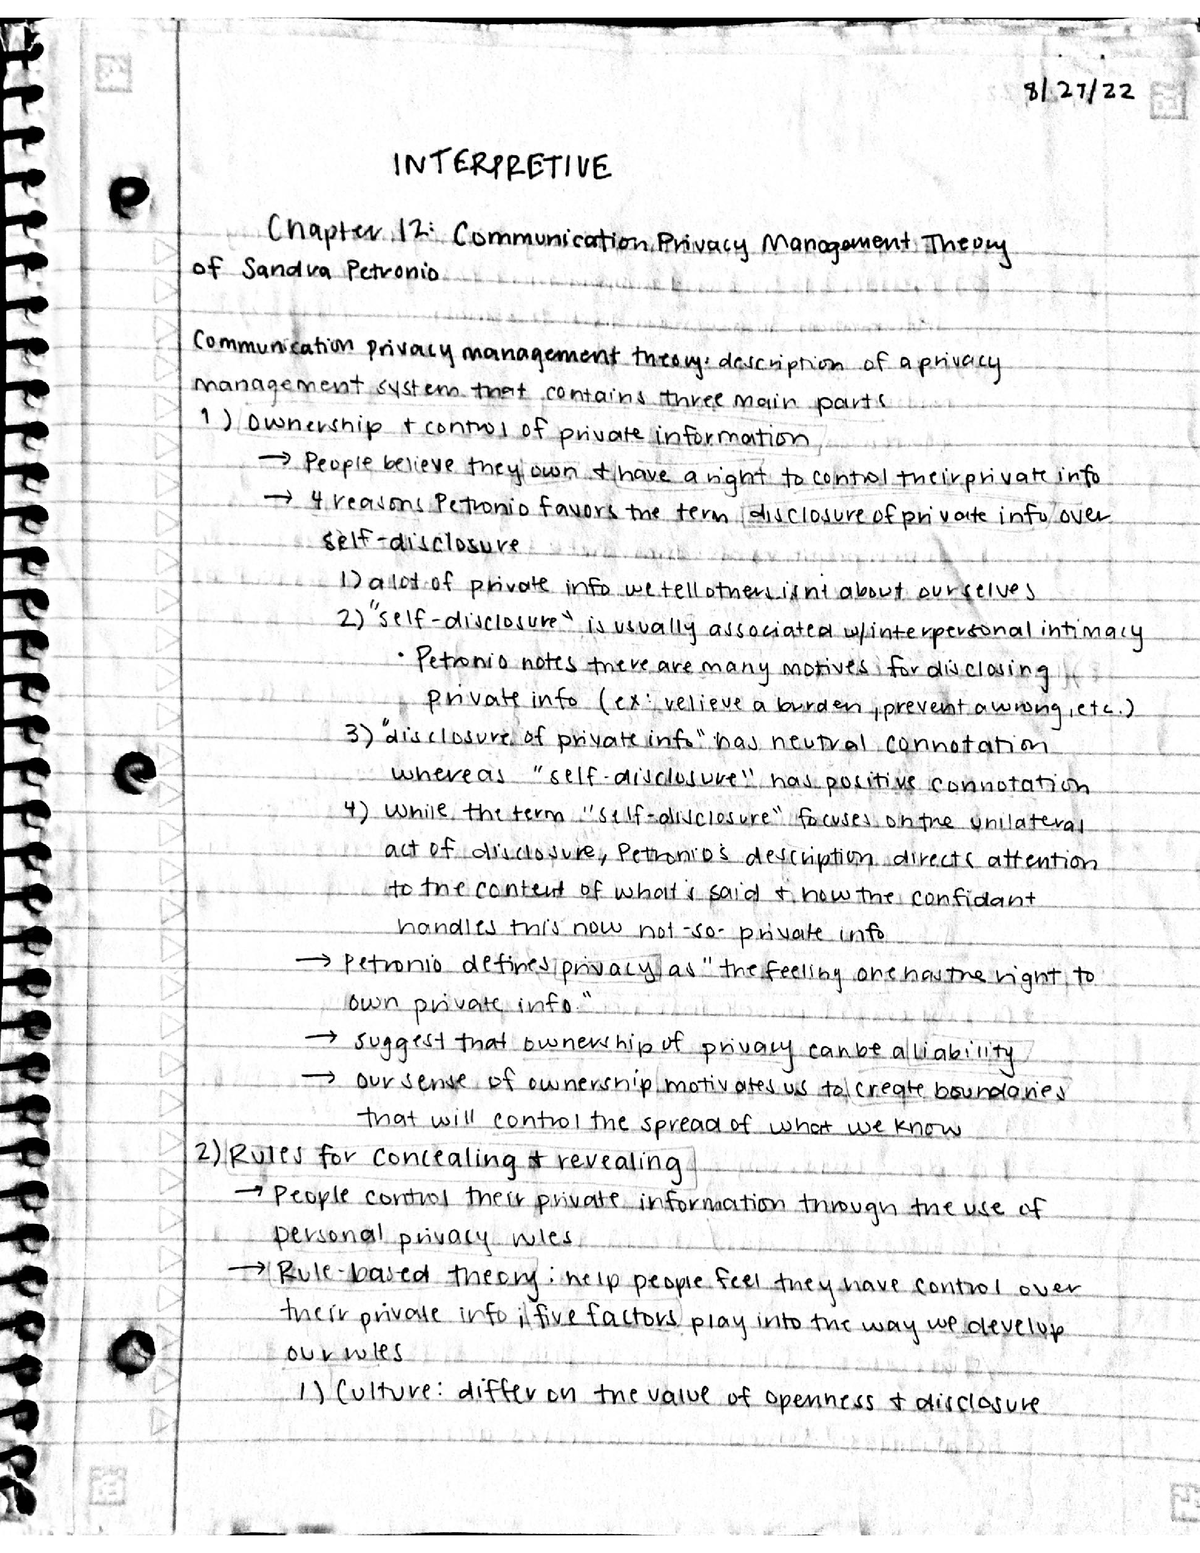 8/27/22
INTERPRETIVE
Chapter 12: Communication Privacy Management Theory
of Sandra Petronio
Communication privacy management theory: description of a privacy
management system that contains three main parts
1) Ownership + control of private information
→ People believe they own + have a right to control their private info
→ 4 reasons Petronio favors the term disclosure of private info over
self-disclosure
1) a lot of private info we tell others isn't about ourselves
2) "self-disclosure" is usually associated w/interpersonal intimacy
• Petronio notes there are many motives for disclosing
private info (ex: relieve a burden, prevent a wrong, etc.)
3) "disclosure of private info" has neutral connotation
whereas "self-disclosure" has positive connotation
4) while the term "self-disclosure" focuses on the unilateral
act of disclosure, Petronio's description directs attention
to the content of what's said + how the confidant
handles this now not-so-private info
→ Petronio defines privacy as "the feeling one has the right to
own private info."
→ suggest that ownership of privacy can be a liability
→ our sense of ownership motivates us to create boundaries
that will control the spread of what we know
2) Rules for concealing + revealing
→ People control their private information through the use of
personal privacy rules
→ Rule-based theory: help people feel they have control over
their private info; five factors play into the way we develop
our rules
1) Culture: differ on the value of openness + disclosure